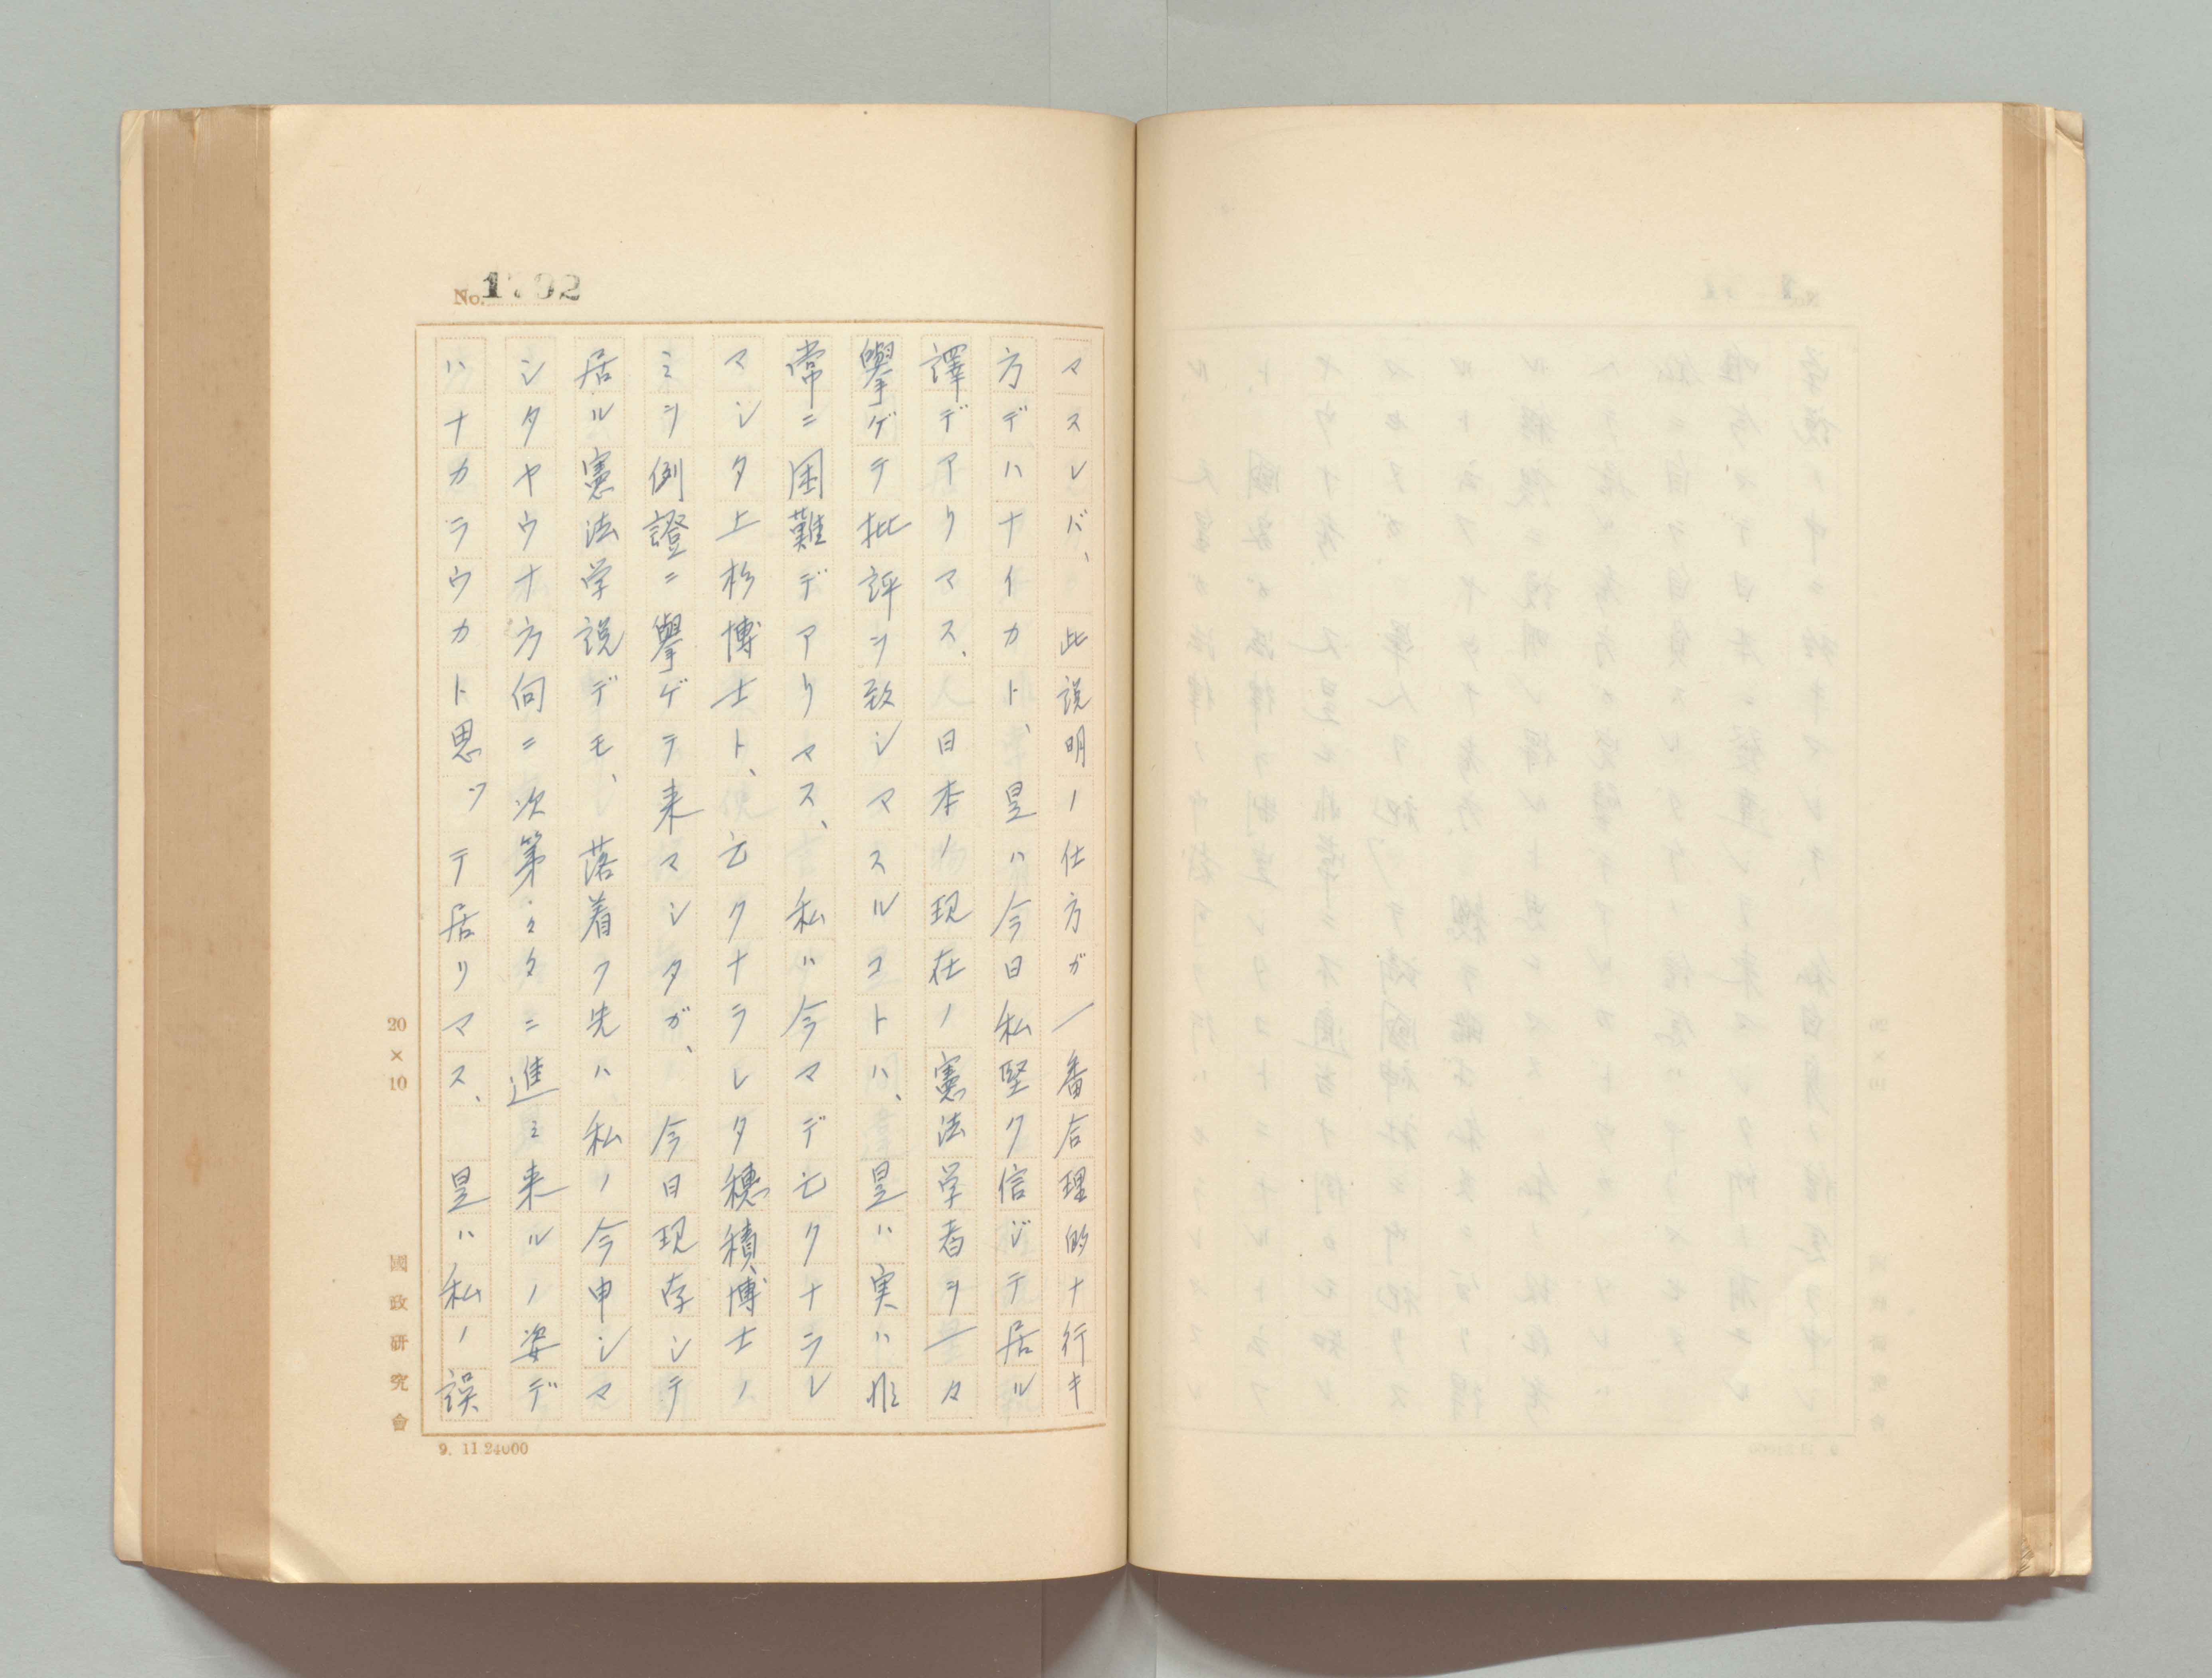 No. 1792
マスレバ、此説明ノ仕方ガ一番合理的ナ行キ
方デハナイカト、是ハ今日私堅ク信ジテ居ル
譯デアリマス、日本ノ現在ノ憲法学者ヲ一々
擧ゲテ批評ヲ致シマスルコトハ、是ハ実ハ非
常ニ困難デアリマス、私ハ今マデ亡クナラレ
マシタ上杉博士ト、亡クナラレタ穂積博士ノ
ミヲ例證ニ擧ゲテ来マシタガ、今日現存シテ
居ル憲法学説デモ、落着ク先ハ私ノ今申シマ
シタヤウナ方向ニ次第々々ニ進ミ来ルノ姿デ
ハナカラウカト思ツテ居リマス、是ハ私ノ誤
20×10
國政研究會
9. 11 24000